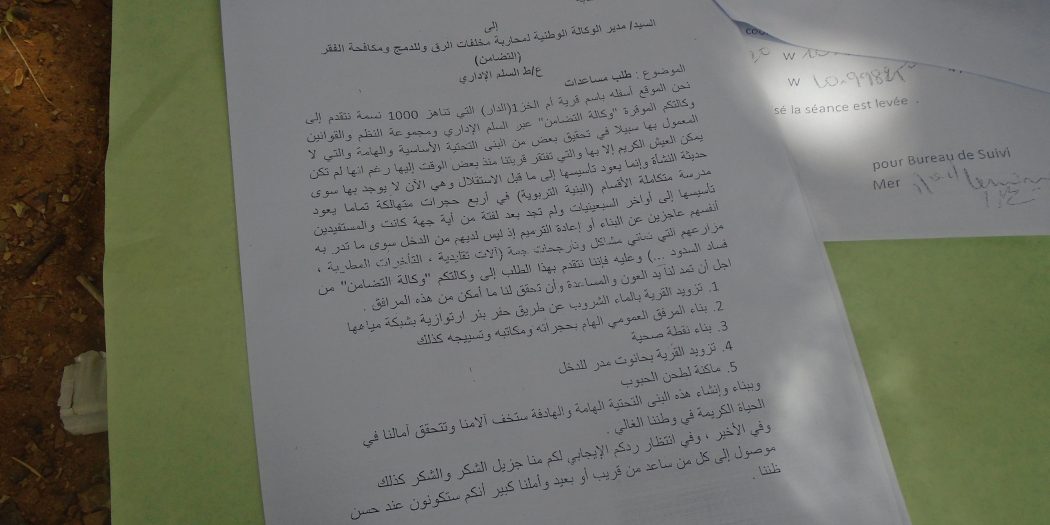 إلى
السيد/ مدير الوكالة الوطنية لمحاربة مخلفات الرق وللدمج ومكافحة الفقر
(التضامن)
ع/ط السلم الإداري
الموضوع : طلب مساعدات
نحن الموقع أسفله باسم قرية أم الخز1(الدار) التي تناهز 1000 نسمة نتقدم إلى
وكالتكم الموقرة "وكالة التضامن" عبر السلم الإداري ومجموعة النظم والقوانين
المعمول بها سبيلا في تحقيق بعض من البنى التحتية الأساسية والهامة والتي لا
يمكن العيش الكريم إلا بها والتي تفتقر قريتنا منذ بعض الوقت إليها رغم انها لم تكن
حديثة النشأة وإنما يعود تأسيسها إلى ما قبل الاستقلال وهي الآن لا يوجد بها سوى
مدرسة متكاملة الأقسام (البنية التربوية) في أربع حجرات متهالكة تماما يعود
تأسيسها إلى أواخر السبعينيات ولم تجد بعد لفتة من أية جهة كانت والمستفيدين
أنفسهم عاجزين عن البناء أو إعادة الترميم إذ ليس لديهم من الدخل سوى ما تدر به
مزارعهم التي تعاني مشاكل جمة (آلات تقليدية ، التأخرات المطرية ،
فساد السدود ...) وعليه فإننا نتقدم بهذا الطلب إلى وكالتكم "وكالة التضامن" من
اجل أن تمد لنا يد العون والمساعدة وأن تحقق لنا ما أمكن من هذه المرافق .
1. تزويد القرية بالماء الشروب عن طريق حفر بئر ارتوازية بشبكة مياهها
2. بناء المرفق العمومي الهام بحجراته ومكاتبه وتسييجه كذلك
3. بناء نقطة صحية
4. تزويد القرية بحانوت مدر للدخل
5. ماكنة لطحن الحبوب
وببناء وإنشاء هذه البنى التحتية الهامة والهادفة ستخف آلامنا وتتحقق أمالنا في
الحياة الكريمة في وطننا الغالي .
وفي الأخير ، وفي انتظار ردكم الإيجابي لكم منا جزيل الشكر والشكر كذلك
موصول إلى كل من ساعد من قريب أو بعيد وأملنا كبير أنكم ستكونون عند حسن
ظننا .
sé la séance est levée .
pour Bureau de Suivi
Mer